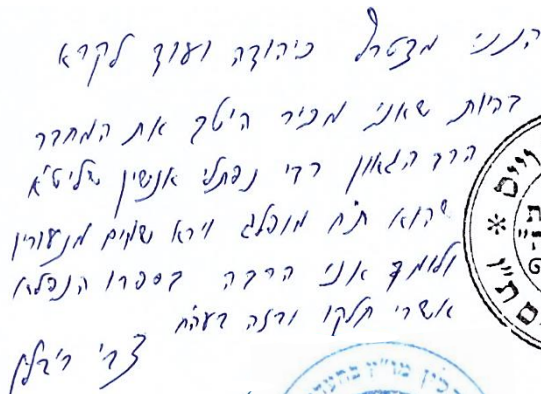 הנני מצטרף כיהודה ועוד לקרא
בהיות שאני מכיר היטב את המחבר
הרב הגאון רבי נפתלי אנשין שליט"א
שהוא ת"ח מופלג וירא שמים מנעוריו
ולומד אני הרבה בספרו הנפלא
אשרי חלקו
צבי